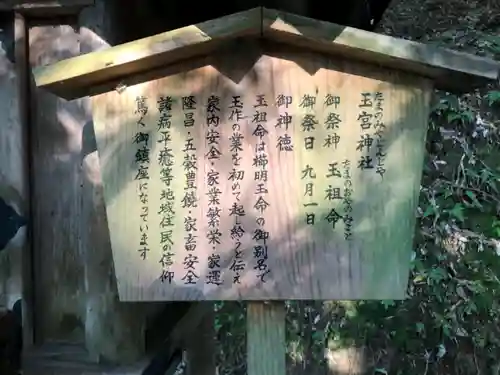 たまのみやじんじゃ
玉宮神社
御祭神 玉祖命
たまのおやのみこと
御祭日 九月一日
御神徳
玉祖命は櫛明玉命の御別名で
玉作の業を初めて起し給うと伝え
家内安全・家業繁栄・家運
隆昌・五穀豊饒・家畜安全
諸病平癒等地域住民の信仰
篤く御鎮座になっています